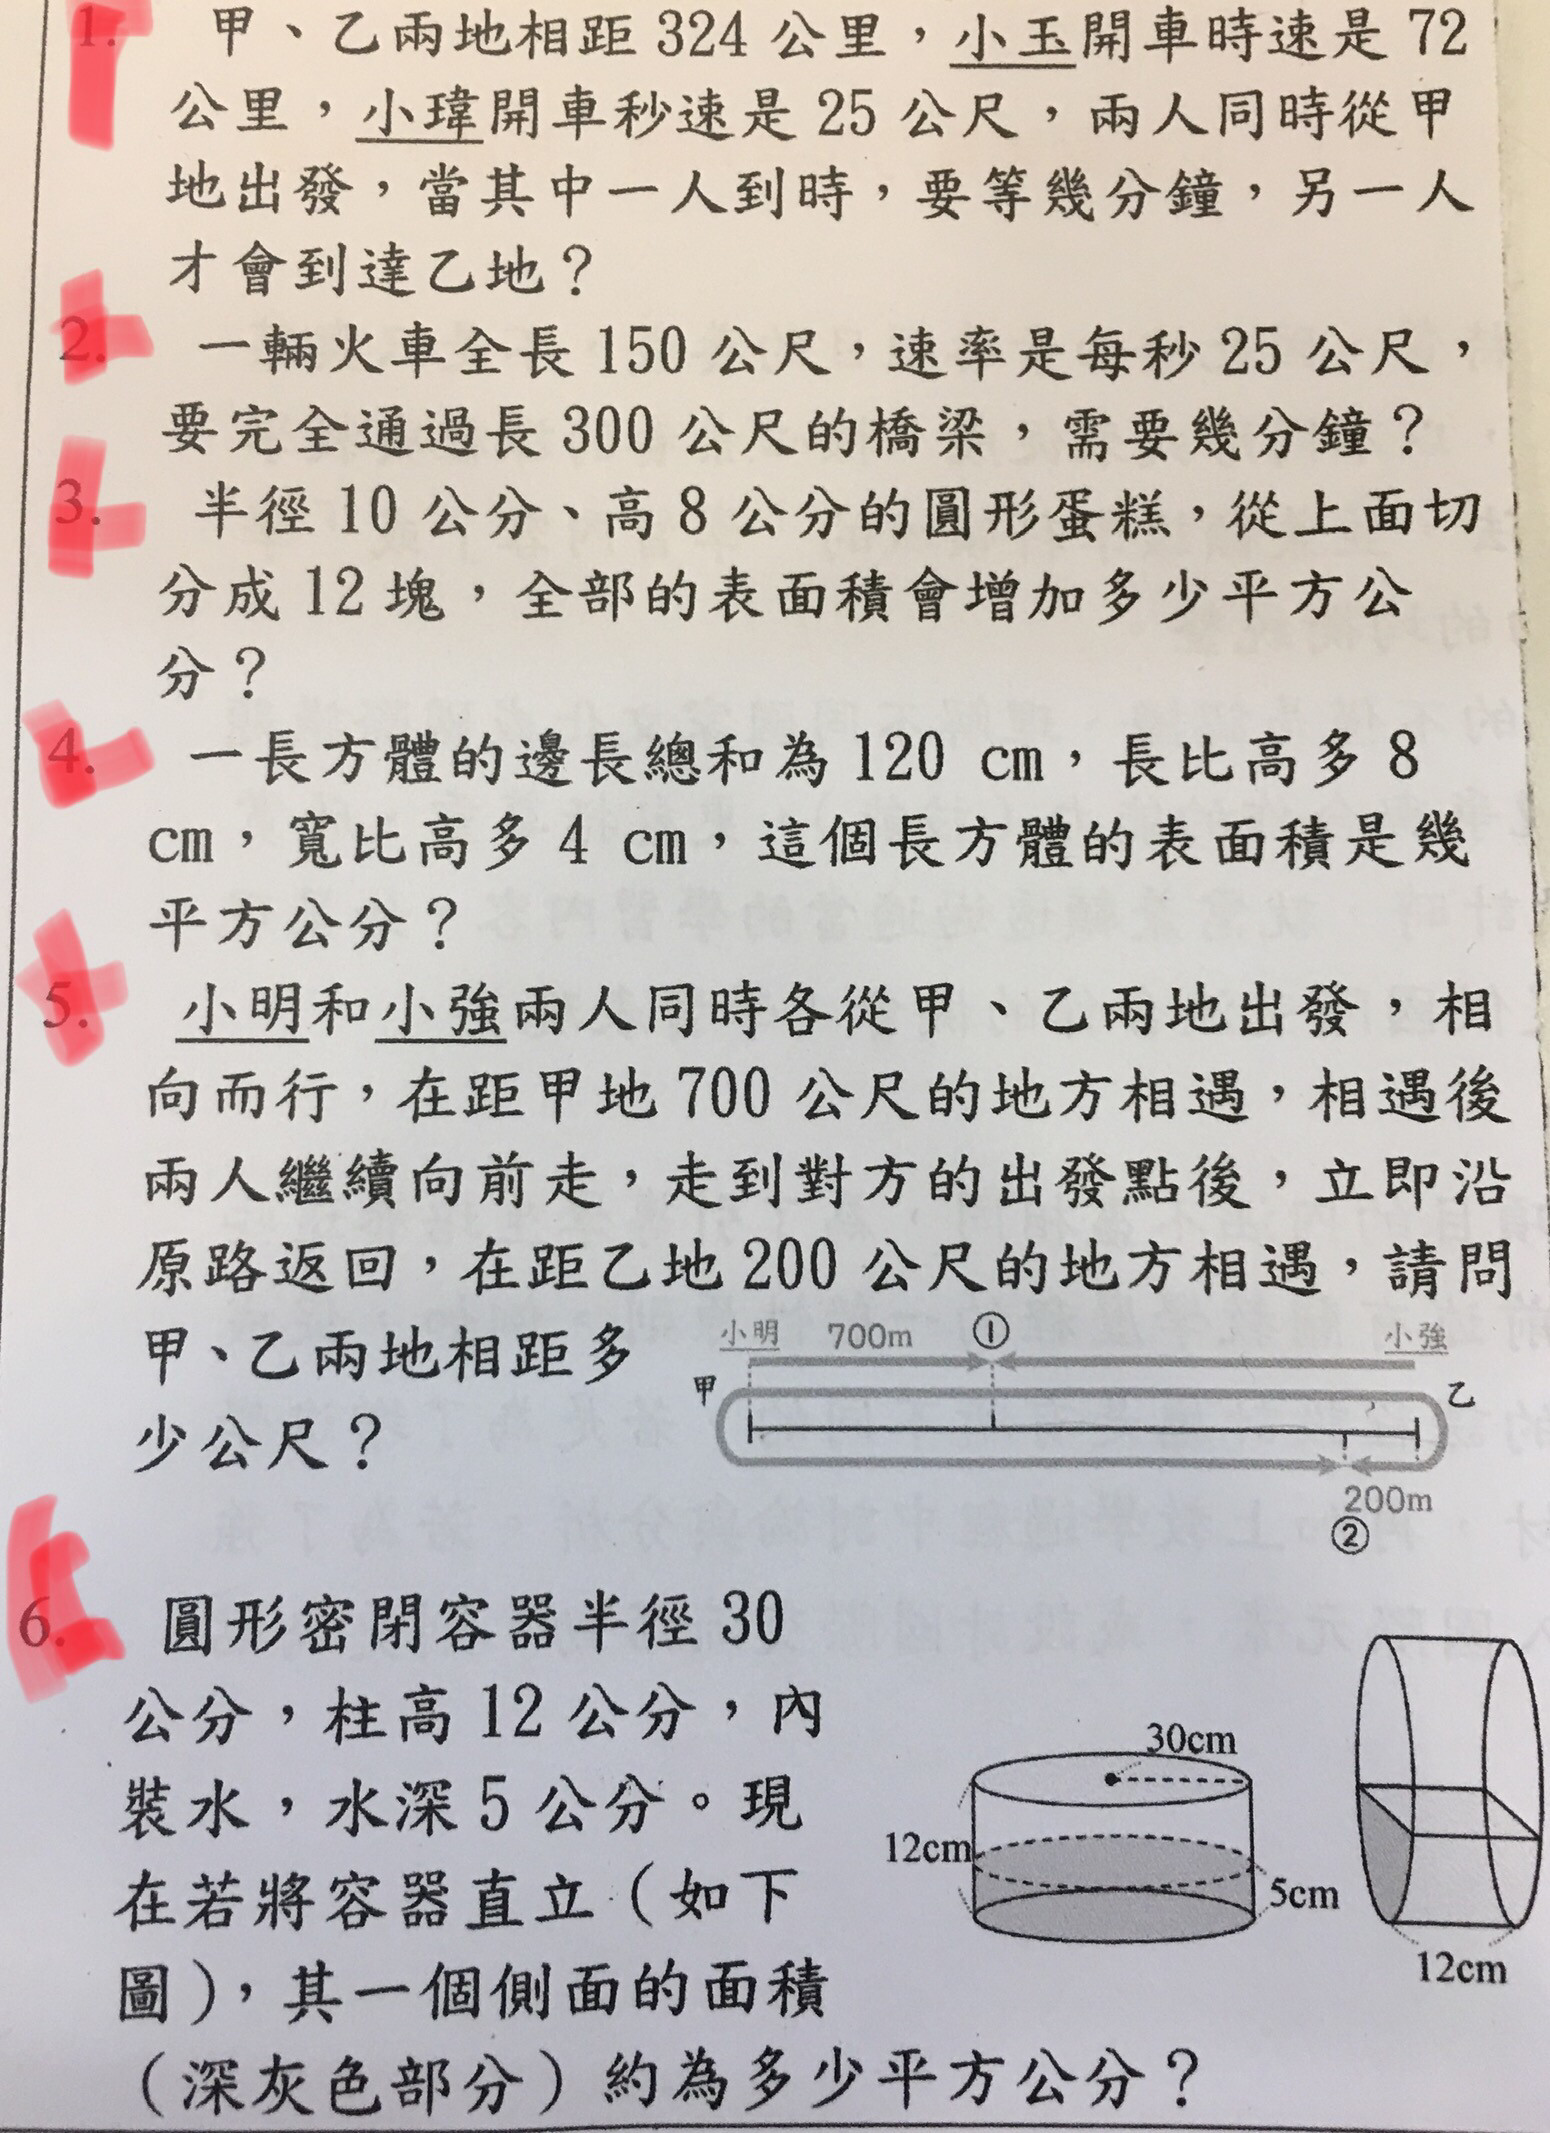 1. 甲、乙兩地相距 324 公里，小玉開車時速是 72
公里，小瑋開車秒速是 25 公尺，兩人同時從甲
地出發，當其中一人到時，要等幾分鐘，另一人
才會到達乙地？
2. 一輛火車全長 150 公尺，速率是每秒 25 公尺，
要完全通過長 300 公尺的橋梁，需要幾分鐘？
3. 半徑 10 公分、高 8 公分的圓形蛋糕，從上面切
分成 12 塊，全部的表面積會增加多少平方公
分？
4. 一長方體的邊長總和為 120 cm，長比高多 8
cm，寬比高多 4 cm，這個長方體的表面積是幾
平方公分？
5. 小明和小強兩人同時各從甲、乙兩地出發，相
向而行，在距甲地 700 公尺的地方相遇，相遇後
兩人繼續向前走，走到對方的出發點後，立即沿
原路返回，在距乙地 200 公尺的地方相遇，請問
甲、乙兩地相距多
少公尺？
小明 700m ① 小強
甲 乙
200m
②
6. 圓形密閉容器半徑 30
公分，柱高 12 公分，內
裝水，水深 5 公分。現
在若將容器直立（如下
圖），其一個側面的面積
（深灰色部分）約為多少平方公分？
30cm
12cm
5cm
12cm